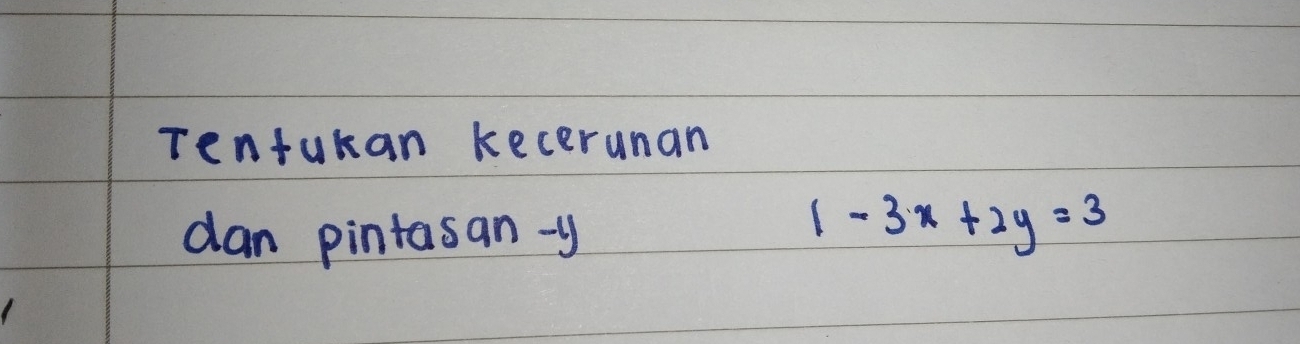 Tentukan kecerunan
dan pintasan -y 1 - 3x + 2y = 3